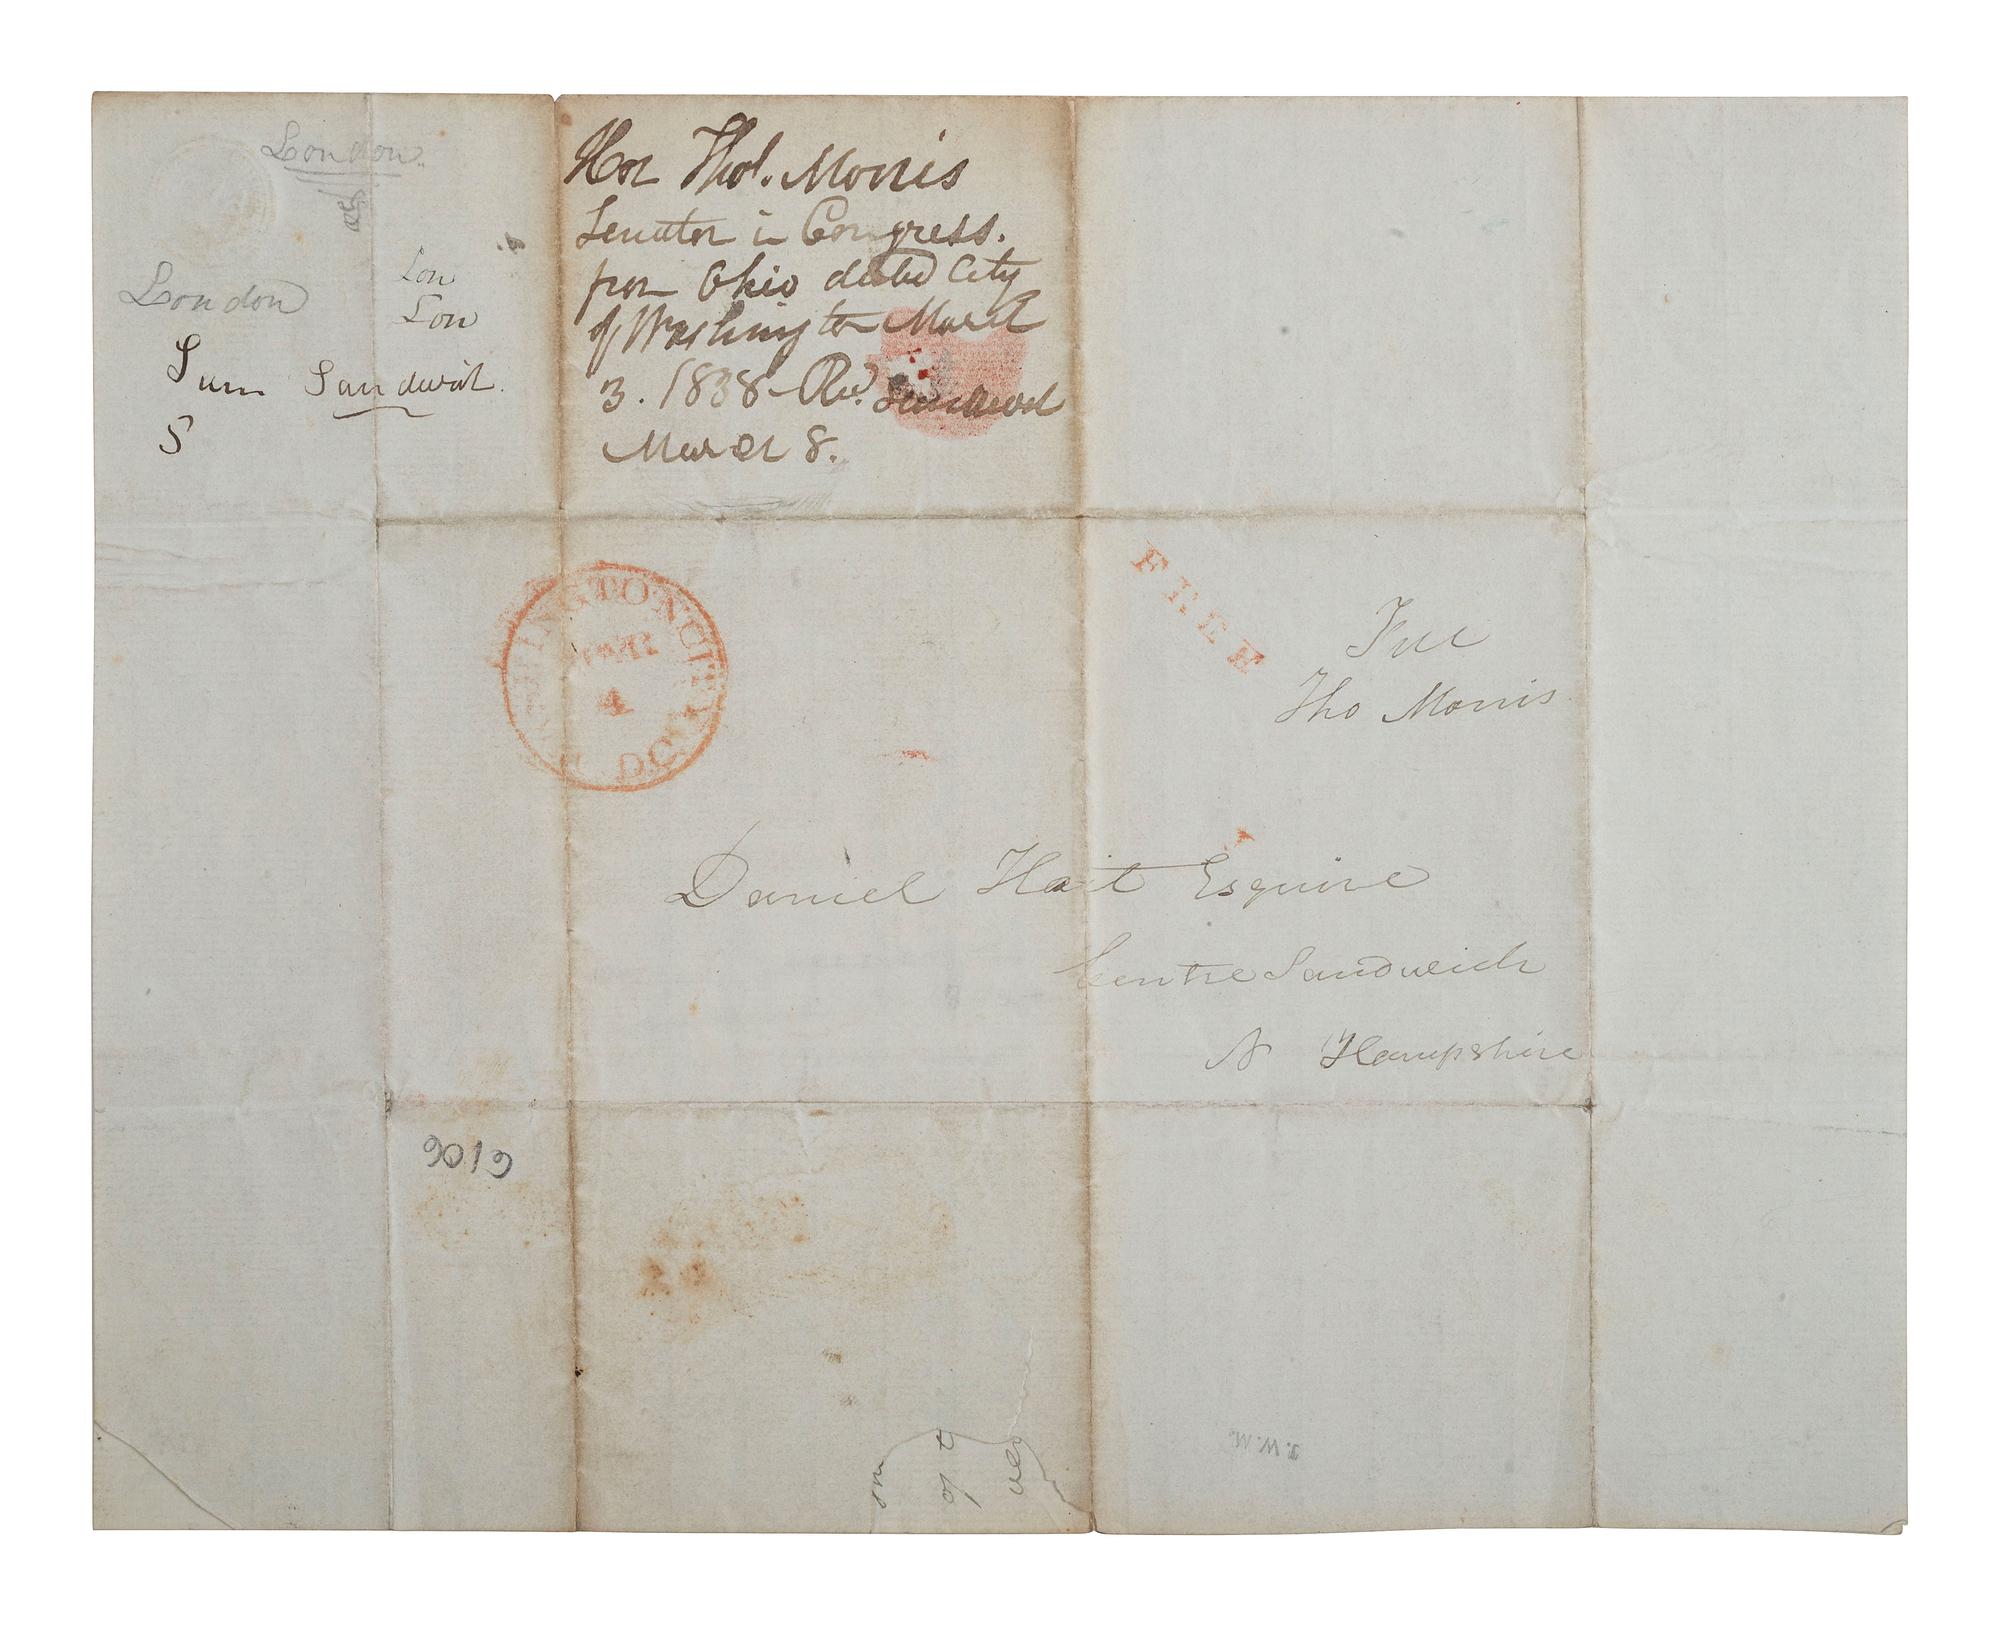 London
London
Lon
Lon
Sum Sandwich
S
Hon Thos. Morris
Senator in Congress.
from Ohio dated City
of Washington March
3. 1838 - Recd. Sandwich
March 8.
WASHINGTON CITY
MAR
4
D.C.
FREE
Free
Tho Morris
Daniel Hoit Esquire
Centre Sandwich
N Hampshire
6106
T.W.M.